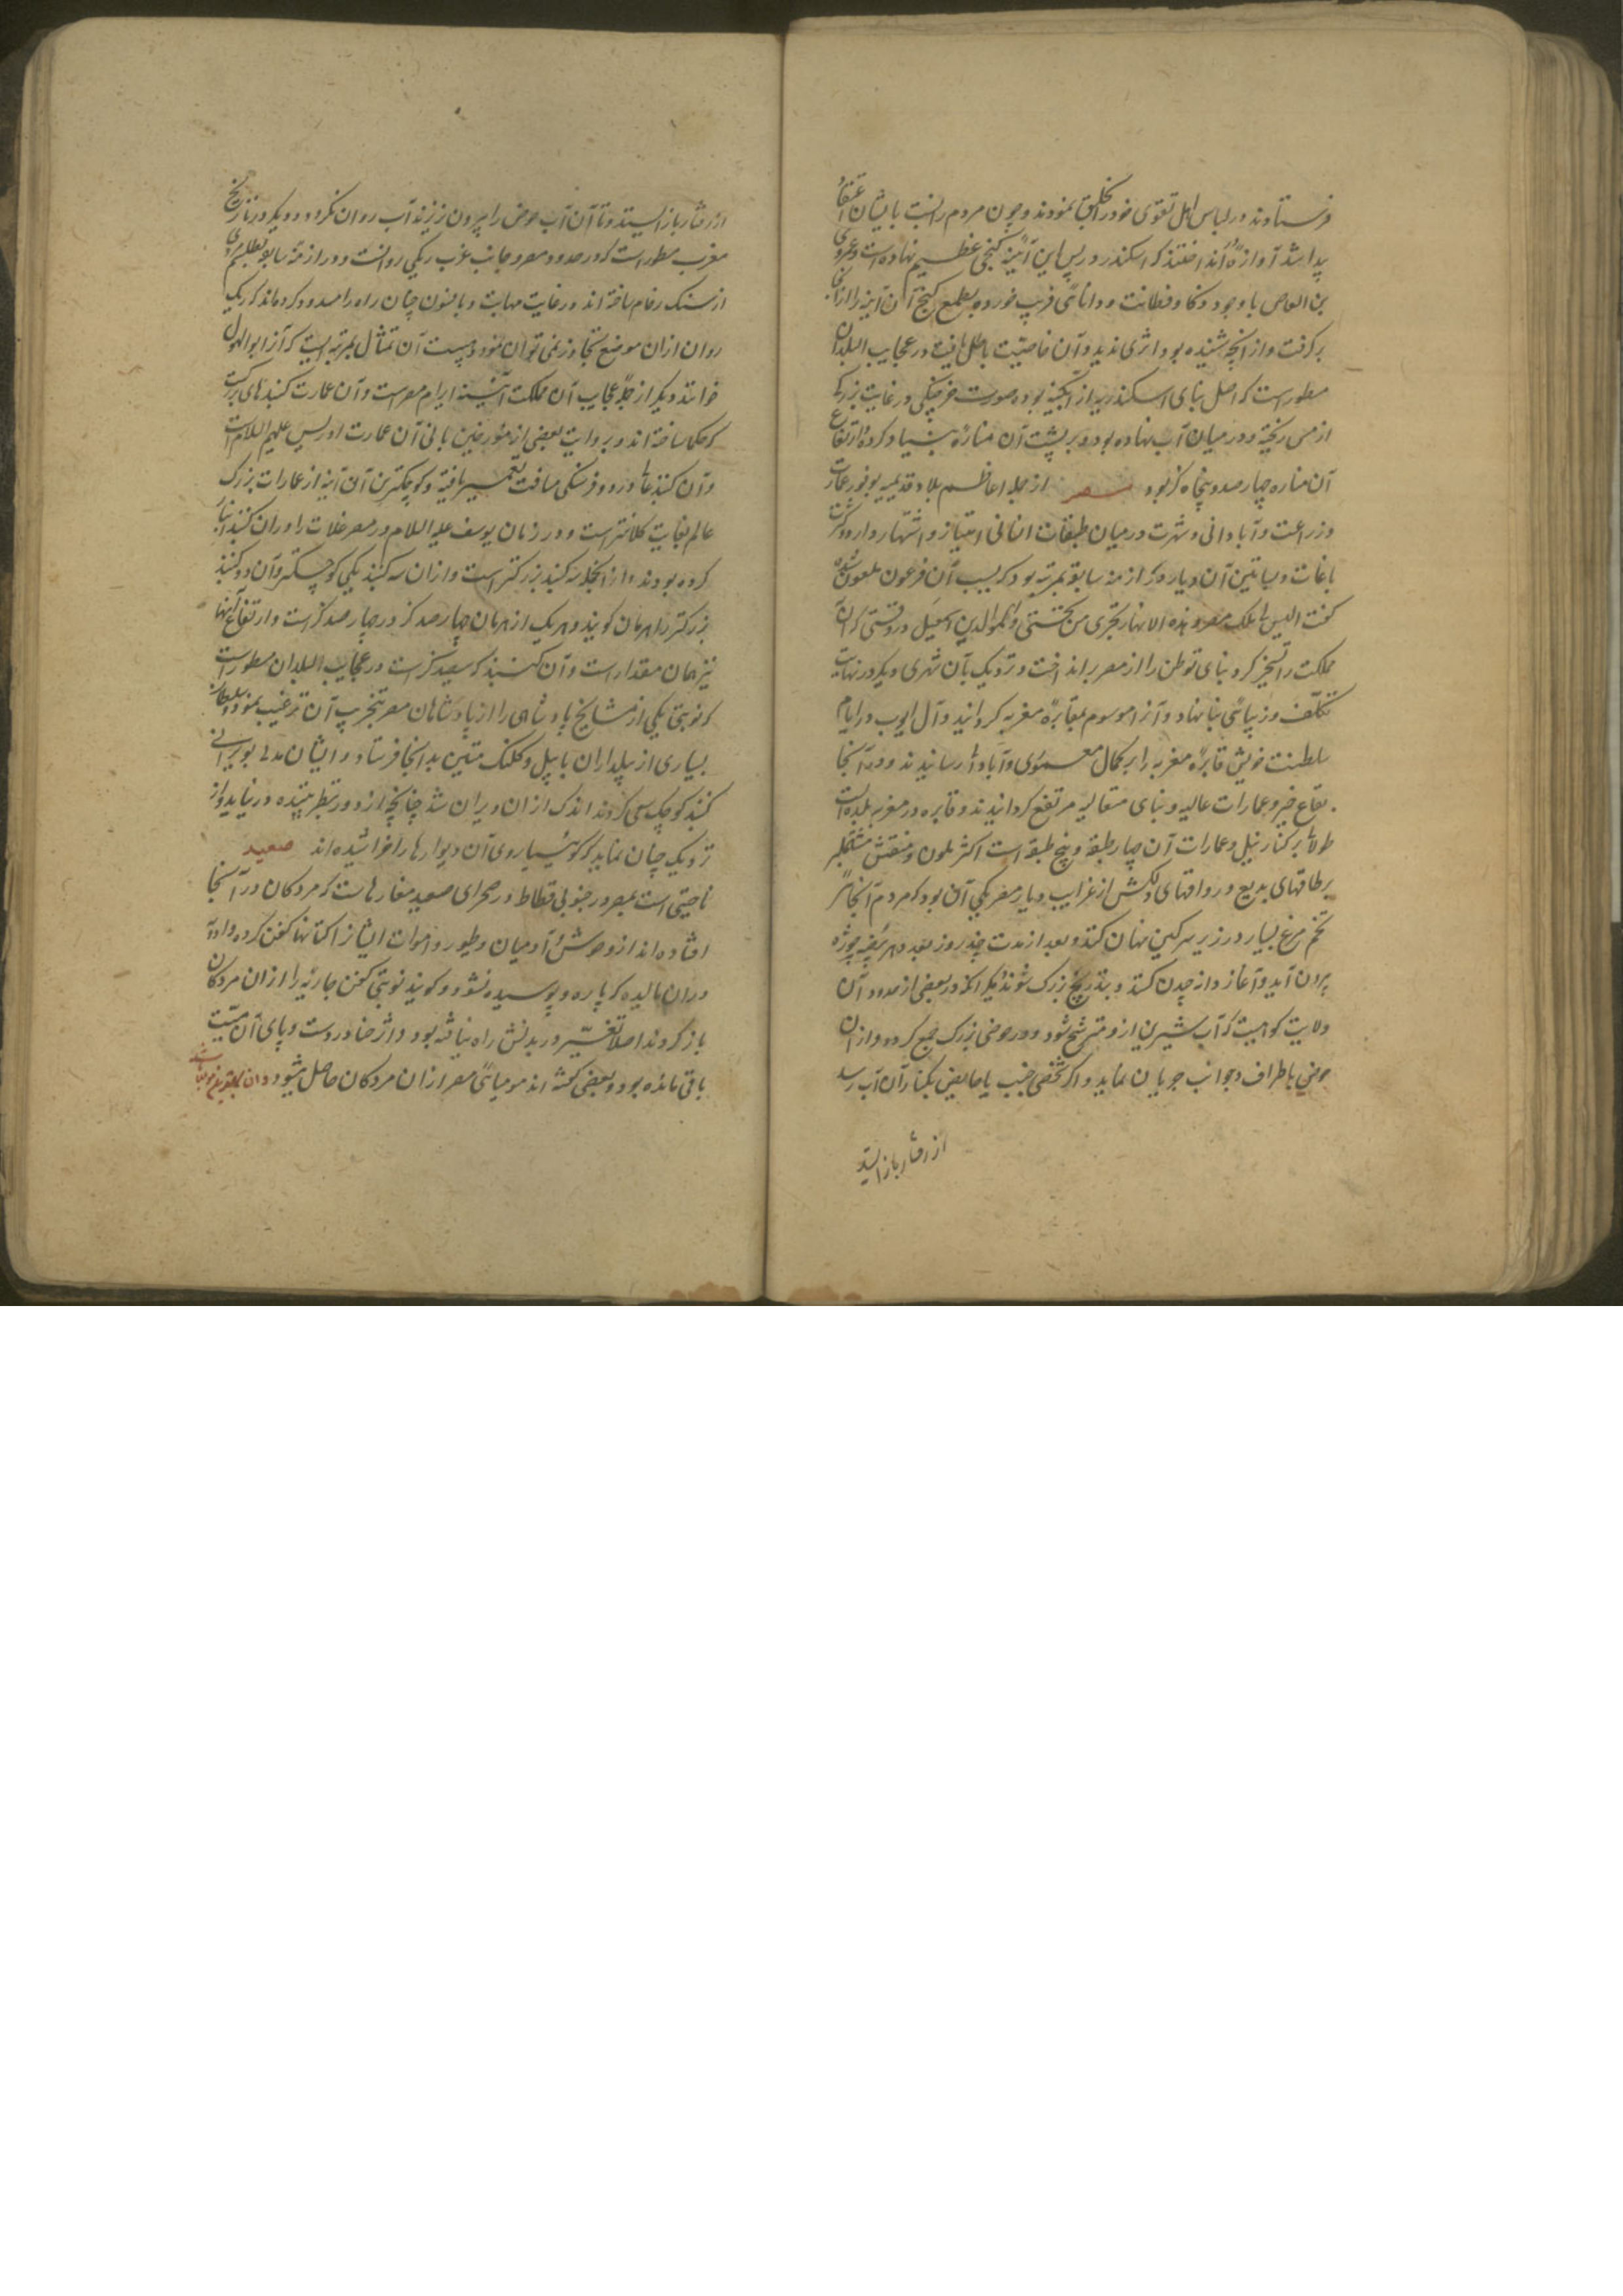 فرستادند در لباس اهل تقوی خود را بخلق نمودند و چون مردم را نسبت بایشان اعتقاد
پیدا شد آوازه انداختند که اسکندر در پس این آیینه گنجی عظیم نهاده است و عمرو
بن العاص با وجود ذکا و فطانت و دانائی فریب خورده بطمع گنج آن آینه را از جا
برگرفت و از آنچه شنیده بود اثری ندید و آن خاصیت باطل یافت در عجایب البلدان
مسطور است که اصل بنای اسکندریه از آبگینه بوده صورت خرچنگی در غایت بزرگی
از مس ریخته و در میان آب نهاده بود و بر پشت آن مناره بنیاد کرده ارتفاع
آن مناره چهارصد و پنجاه گز بود مصر از جمله اعاظم بلاد قدیمه بوفور عمارت
و زراعت و آبادانی و شهرت در میان طبقات انسانی امتیاز و اشتهار دارد و کثرت
باغات و بساتین آن دیار در ازمنه سابقه بمرتبه بود که بسبب آن فرعون ملعون
گفت الیس لی ملک مصر و هذه الانهار تجری من تحتی و ابو الدین اسمعیل در وقتی که آن
مملکت را تسخیر کرد بنای توطن را از مصر برانداخت و نزدیک بآن شهری دیگر در نهایت
تکلف و زیبائی بنا نهاد و آنرا موسوم بقاهره مغربه گردانید و آل ایوب در ایام
سلطنت خویش قاهره مغربه را بر کمال معموری و آبادی رسانیدند و در آنجا
بقاع خیر و عمارات عالیه و بنای متعالیه مرتفع گردانیدند و قاهره در مغربه بلده است
طولانی بر کنار نیل و عمارات آن چهار طبقه و پنج طبقه است اکثر ملون و منقش مشتمل
بر طاقهای بدیع و رواقهای دلکش از غرایب دیار مصر یکی آن بود که مردم آنجا
تخم مرغ بسیار در زیر سرگین نهان کنند و بعد از مدت چند روز بعدد هر بیضه چوژه
بیرون آید و آغاز دانه چیدن کند و بتدریج بزرگ شوند دیگر آنکه در بعضی از حدود آن
ولایت کوهیست که آب شیرین ازو مترشح شود و در حوضی بزرگ جمع گردد و از آن
حوض باطراف و جوانب جریان نماید و اگر شخصی جنب یا حایض بکنار آن آب رسد
از رفتار باز ایستد
از رفتار باز ایستد و تا آن آب حوض را بیرون نریزند آب روان نگردد و دیگر در تاریخ
مغرب مسطور است که در حدود مصر و جانب غرب ریگی روانست و در ازمنه سابقه بطلسم
از سنگ رخام ساخته اند در غایت مهابت و بافسون چنان راه را مسدود کرده اند که ریگ
روان از آن موضع تجاوز نمی تواند نمود و هیبت آن تمثال بمرتبه ایست که آنرا ابوالهول
خوانند و دیگر از جمله عجایب آن مملکت ابنیه اهرام مصر است و آن عمارت گنبدهای بزرگست
که حکما ساخته اند و بروایت بعضی از مورخین بانی آن عمارت ادریس علیه السلام است
و آن گنبدها در دو فرسنگی مسافت تعمیر یافته و کوچکترین آن ابنیه از عمارات بزرگ
عالم بغایت کلانتر است و در زمان یوسف علیه السلام در مصر غلات را در آن گنبدها انبار
کرده بودند و از آنجمله سه گنبد بزرگتر است و از آن سه گنبد یکی کوچکتر و آن دو گنبد
بزرگتر را هرمان گویند و هر یک از هرمان چهارصد گز در چهارصد گز است و ارتفاع آنها
نیز همان مقدار است و آن گنبد که سیصد گز است در عجایب البلدان مسطور است
که نوبتی یکی از مشایخ پادشاهی را از پادشاهان مصر بتخریب آن ترغیب نمود و سلطان
بسیاری از بیلداران با بیل و کلنگ متین بدانجا فرستاد و ایشان مدتی بویرانی
گنبد کوچک سعی کردند اندک از آن ویران شد چنانچه از دور بنظر بیننده در نیاید و از
نزدیک چنان نماید که گوئیا روی آن دیوارها را خراشیده اند صعید
ناحیتی است بمصر در جنوبی فسطاط در صحرای صعید مغارهاست که مردگان در آنجا
افتاده اند از وحوش و آدمیان و طیور و اموات ایشانرا کتانها کفن کرده و ادویه
در آن مالیده که پاره و پوسیده نشود و گویند نوبتی کفن جاریه را از آن مردگان
باز کردند اصلا تغییر در بدنش راه نیافته بود و اثر حنا در دست و پای آن میت
باقی مانده بود و بعضی گفته اند مومیائی مصر از آن مردگان حاصل میشود